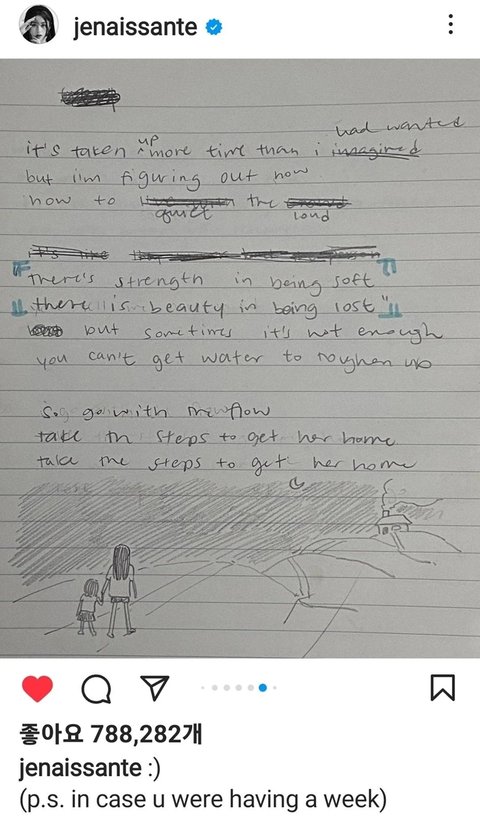 jenaissante
had wanted
it's taken up more time than i imagined
but i'm figuring out now
how to quiet the loud
"there's strength in being soft
there is beauty in being lost"
but sometimes it's not enough
you can't get water to roughen up
so go with the flow
take the steps to get her home
take the steps to get her home
좋아요 788,282개
jenaissante :)
(p.s. in case u were having a week)